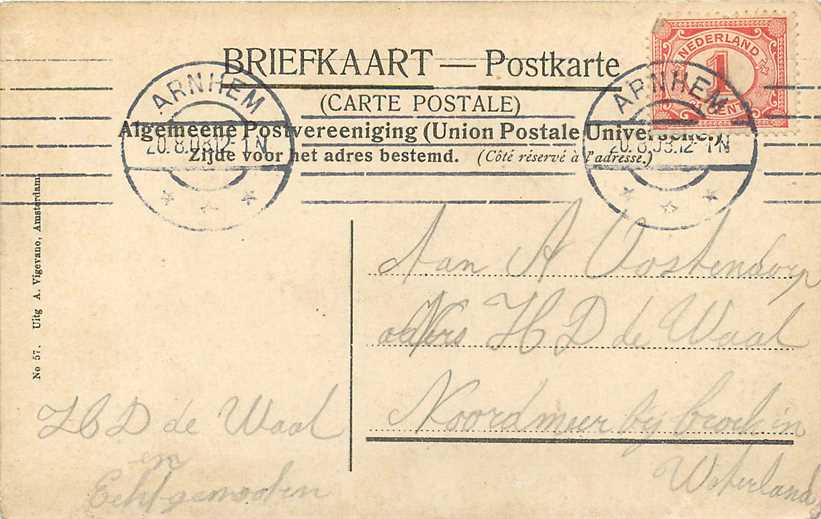 BRIEFKAART — Postkarte
(CARTE POSTALE)
Algemeene Postvereeniging (Union Postale Universelle.)
Zijde voor het adres bestemd. (Côté réservé à l'adresse.)
NEDERLAND
1
CENT
ARNHEM
20.8.08.12-1N
ARNHEM
20.8.08.12-1N
No 57. Uitg A. Vigevano, Amsterdam
Aan A Oostendorp
H D de Waal
Noordmeer bij broek in
Waterland
H D de Waal
en
Echtgenooten